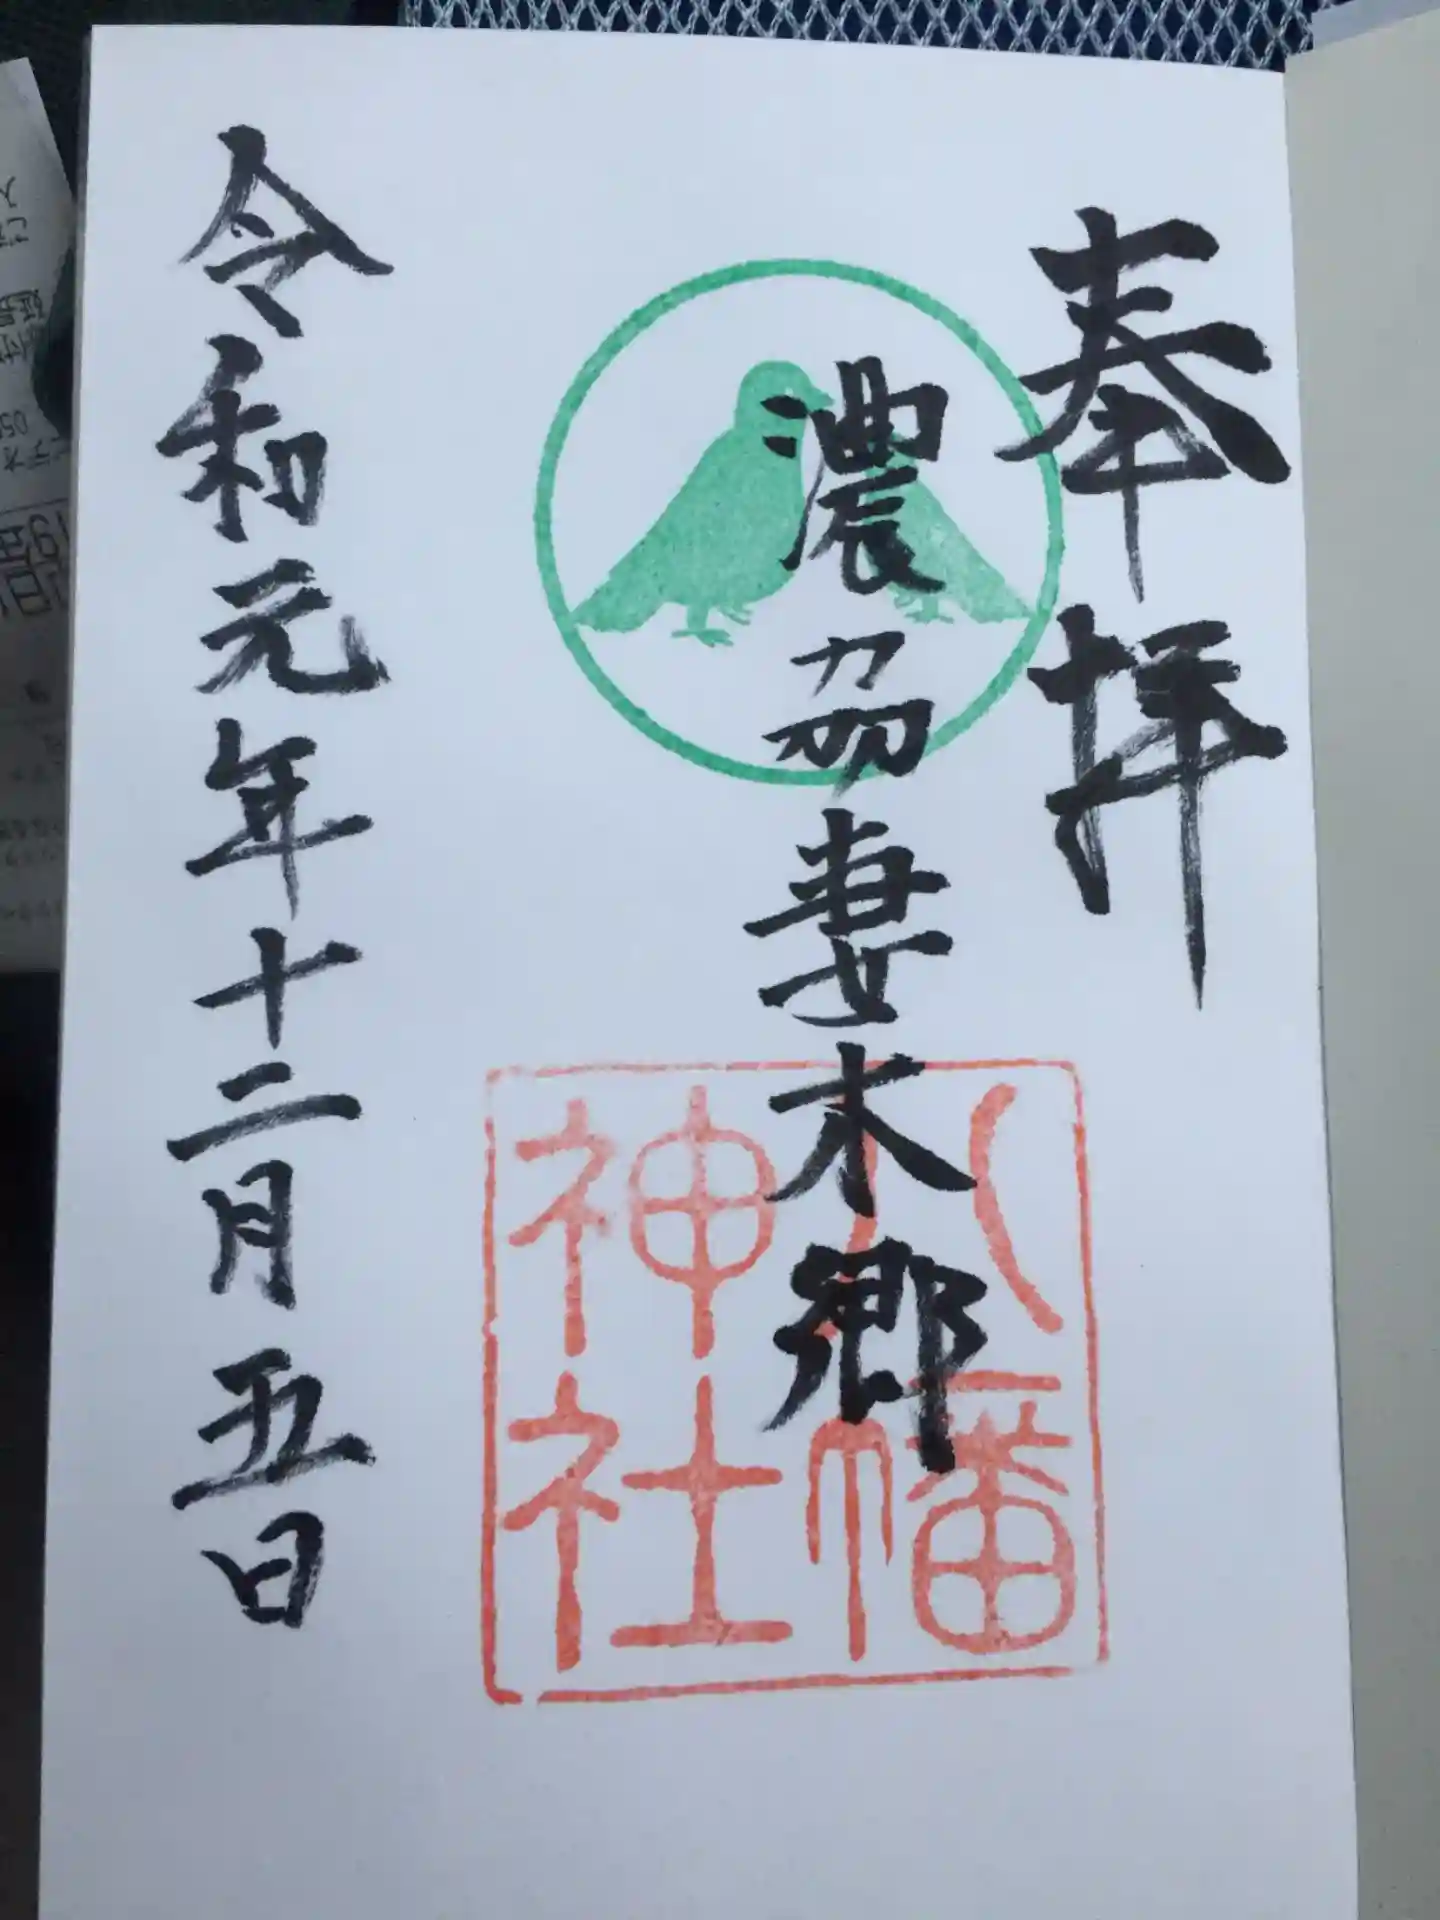 奉拝
濃刕妻木郷
八幡
神社
令和元年十二月五日